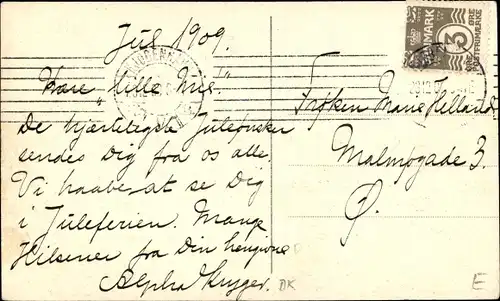 Jul 1909.
Kære "lille Mis!"
De hjærteligste Juleønsker
sendes Dig fra os alle.
Vi haaber at se Dig
i Juleferien. Mange
Hilsener fra Din hengivne
Alpha Kryger.
DK
3
ØRE
Frøken Marie Helland
Malmøgade 3.
Ø.
E